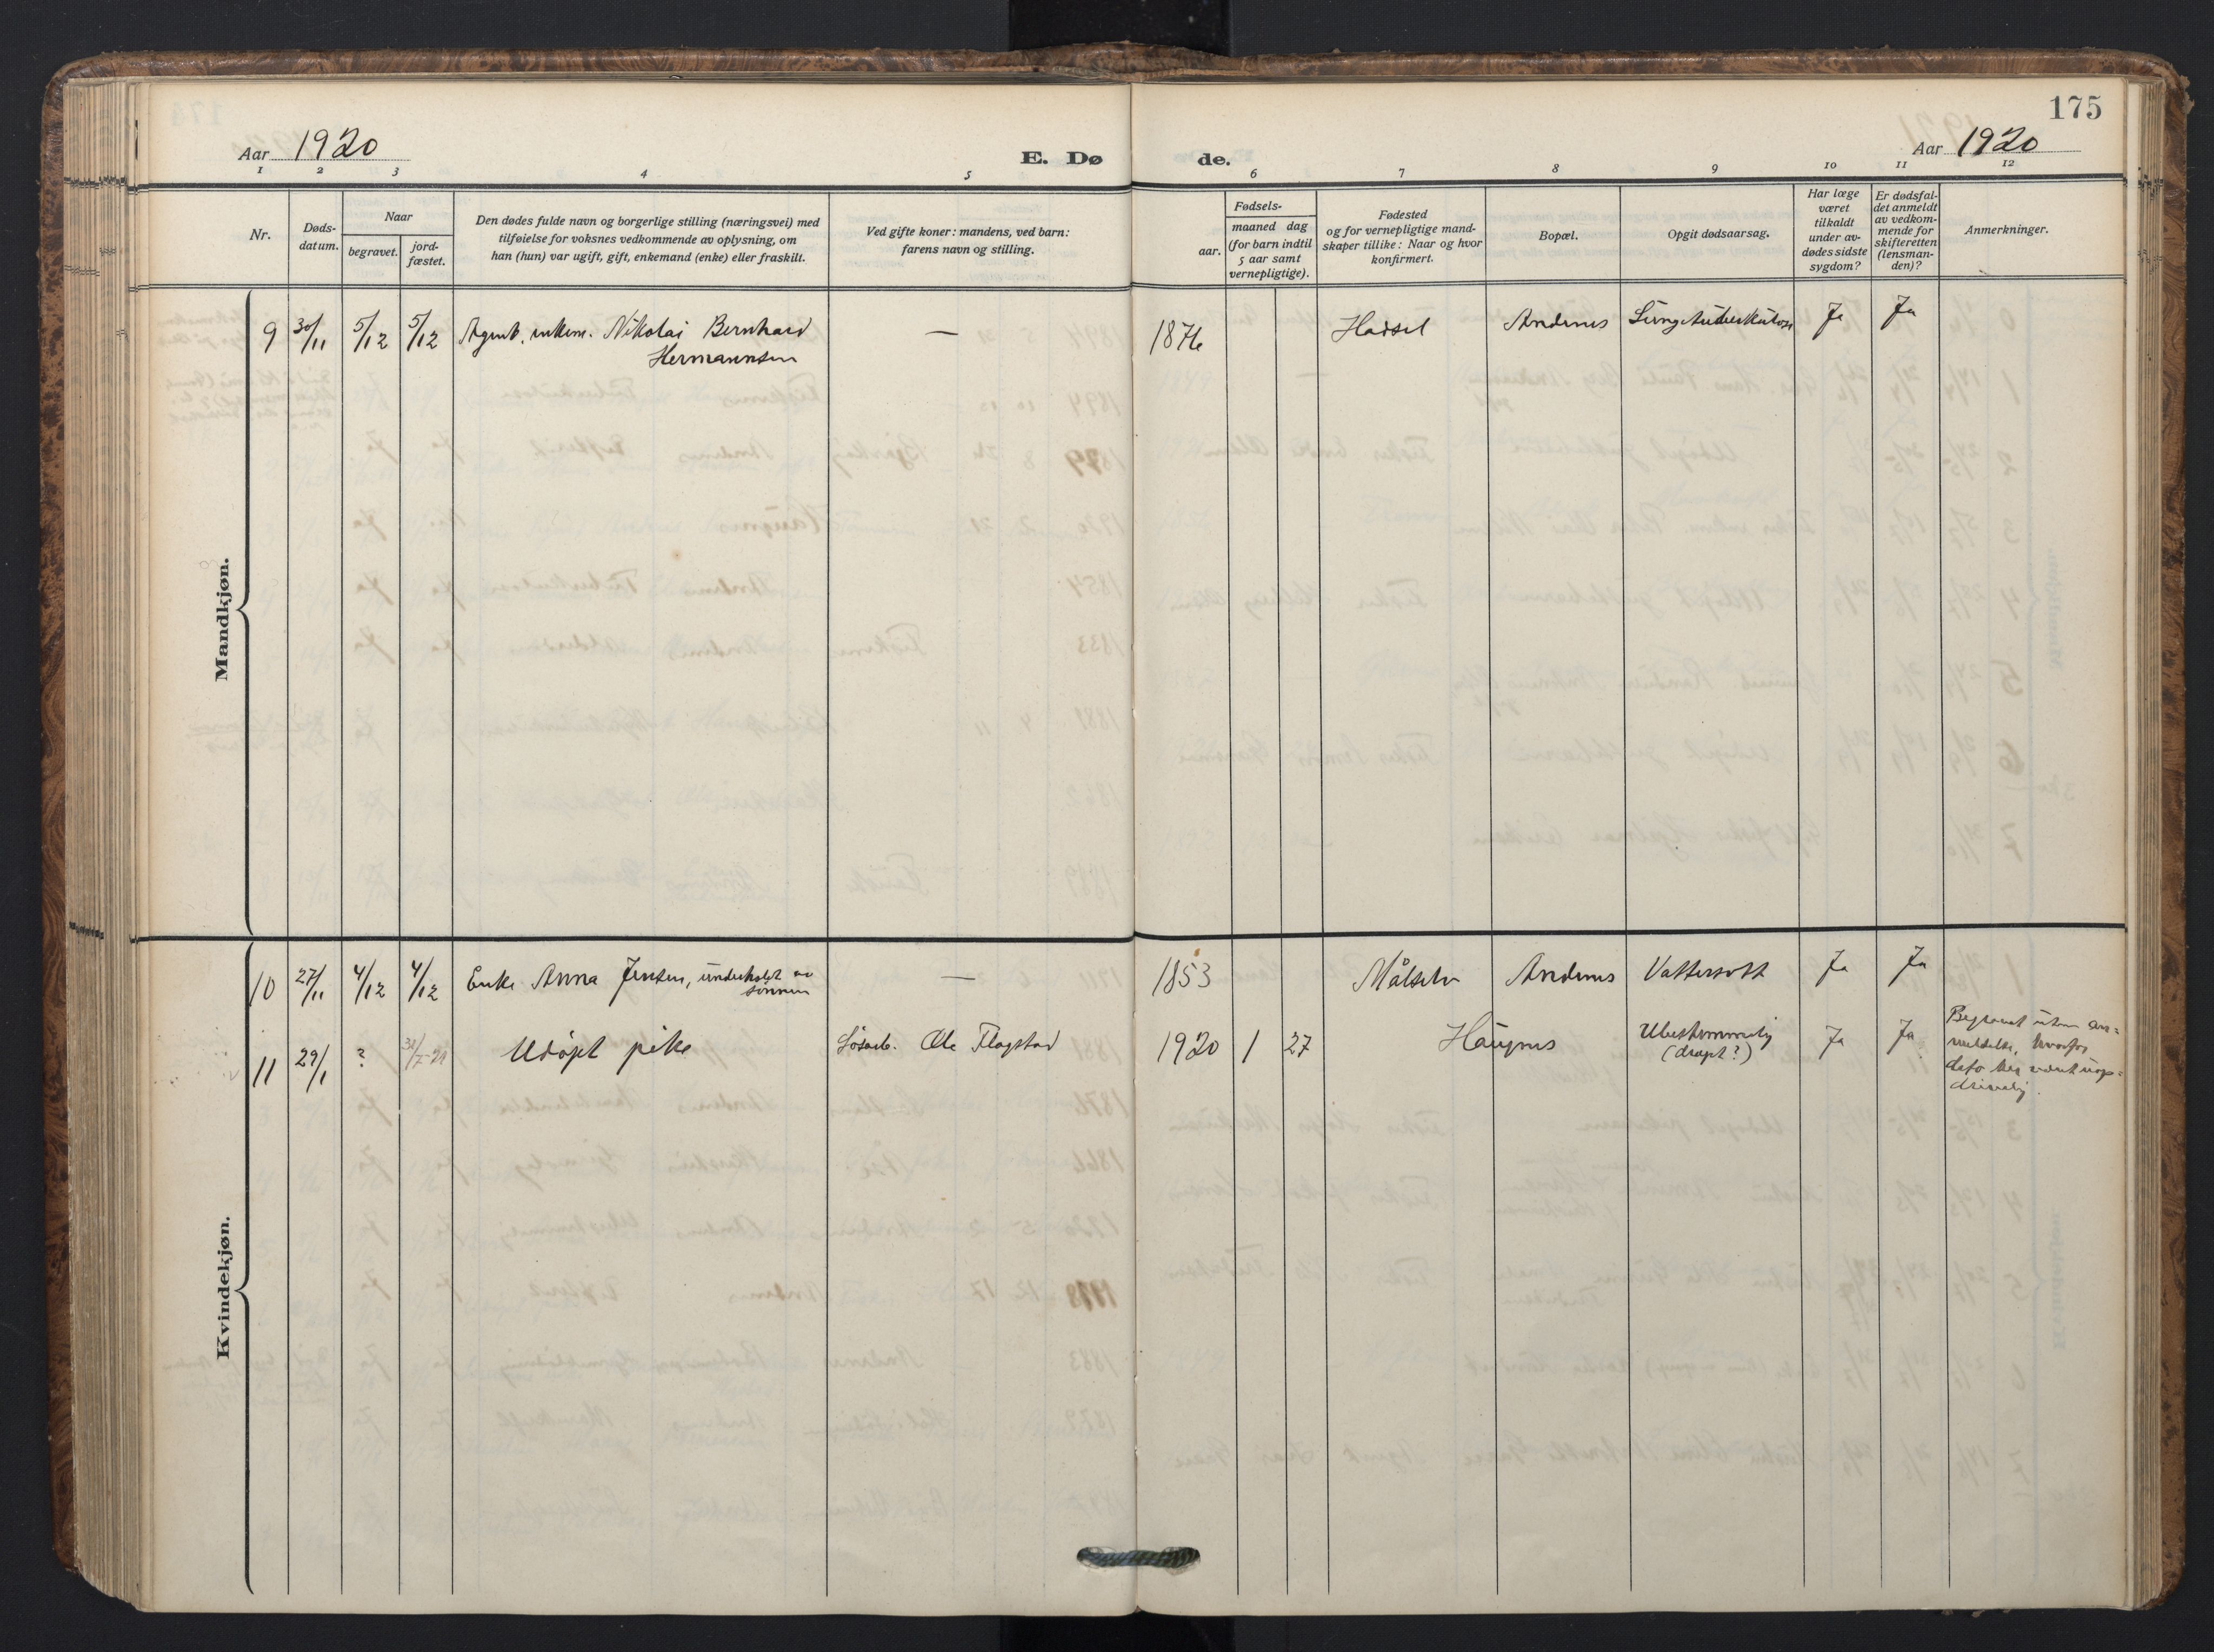 175
Aar 1920
E. Dø
de.
Aar 1920
1 2 3 4 5
6 7 8 9 10 11 12
Nr.
Døds-
datum.
Naar
begravet.
jord-
fæstet.
Den dødes fulde navn og borgerlige stilling (næringsvei) med
tilføielse for voksnes vedkommende av oplysning, om
han (hun) var ugift, gift, enkemand (enke) eller fraskilt.
Ved gifte koner: mandens, ved barn:
farens navn og stilling.
Fødsels-
aar.
maaned dag
(for barn indtil
5 aar samt
vernepligtige).
Fødested
og for vernepligtige mand-
skaper tillike: Naar og hvor
konfirmert.
Bopæl.
Opgit dødsaarsag.
Har læge
været
tilkaldt
under av-
dødes sidste
sygdom?
Er dødsfal-
det anmeldt
av vedkom-
mende for
skifteretten
(lensman-
den)?
Anmerkninger.
Mandkjøn.
9 30/11 5/12 5/12 Agent, enkem. Nikolai Bernhard — 1876 Hadsel Andenes Lungetuberkulose Ja Ja
Hermannsen
Kvindekjøn.
10 27/11 4/12 4/12 Enke Anna Jensen, underholdt av — 1853 Målselv Andenes Vattersott Ja Ja
sønnen
11 29/1 ? Udöpt pike Løsarb. Ole Flagstad 1920 1 27 Haugnes Ubestemmelig Ja Ja
(dræpt?)
Begravet uten an-
meldelse, hvorfor
dato har været uop-
drivelig.